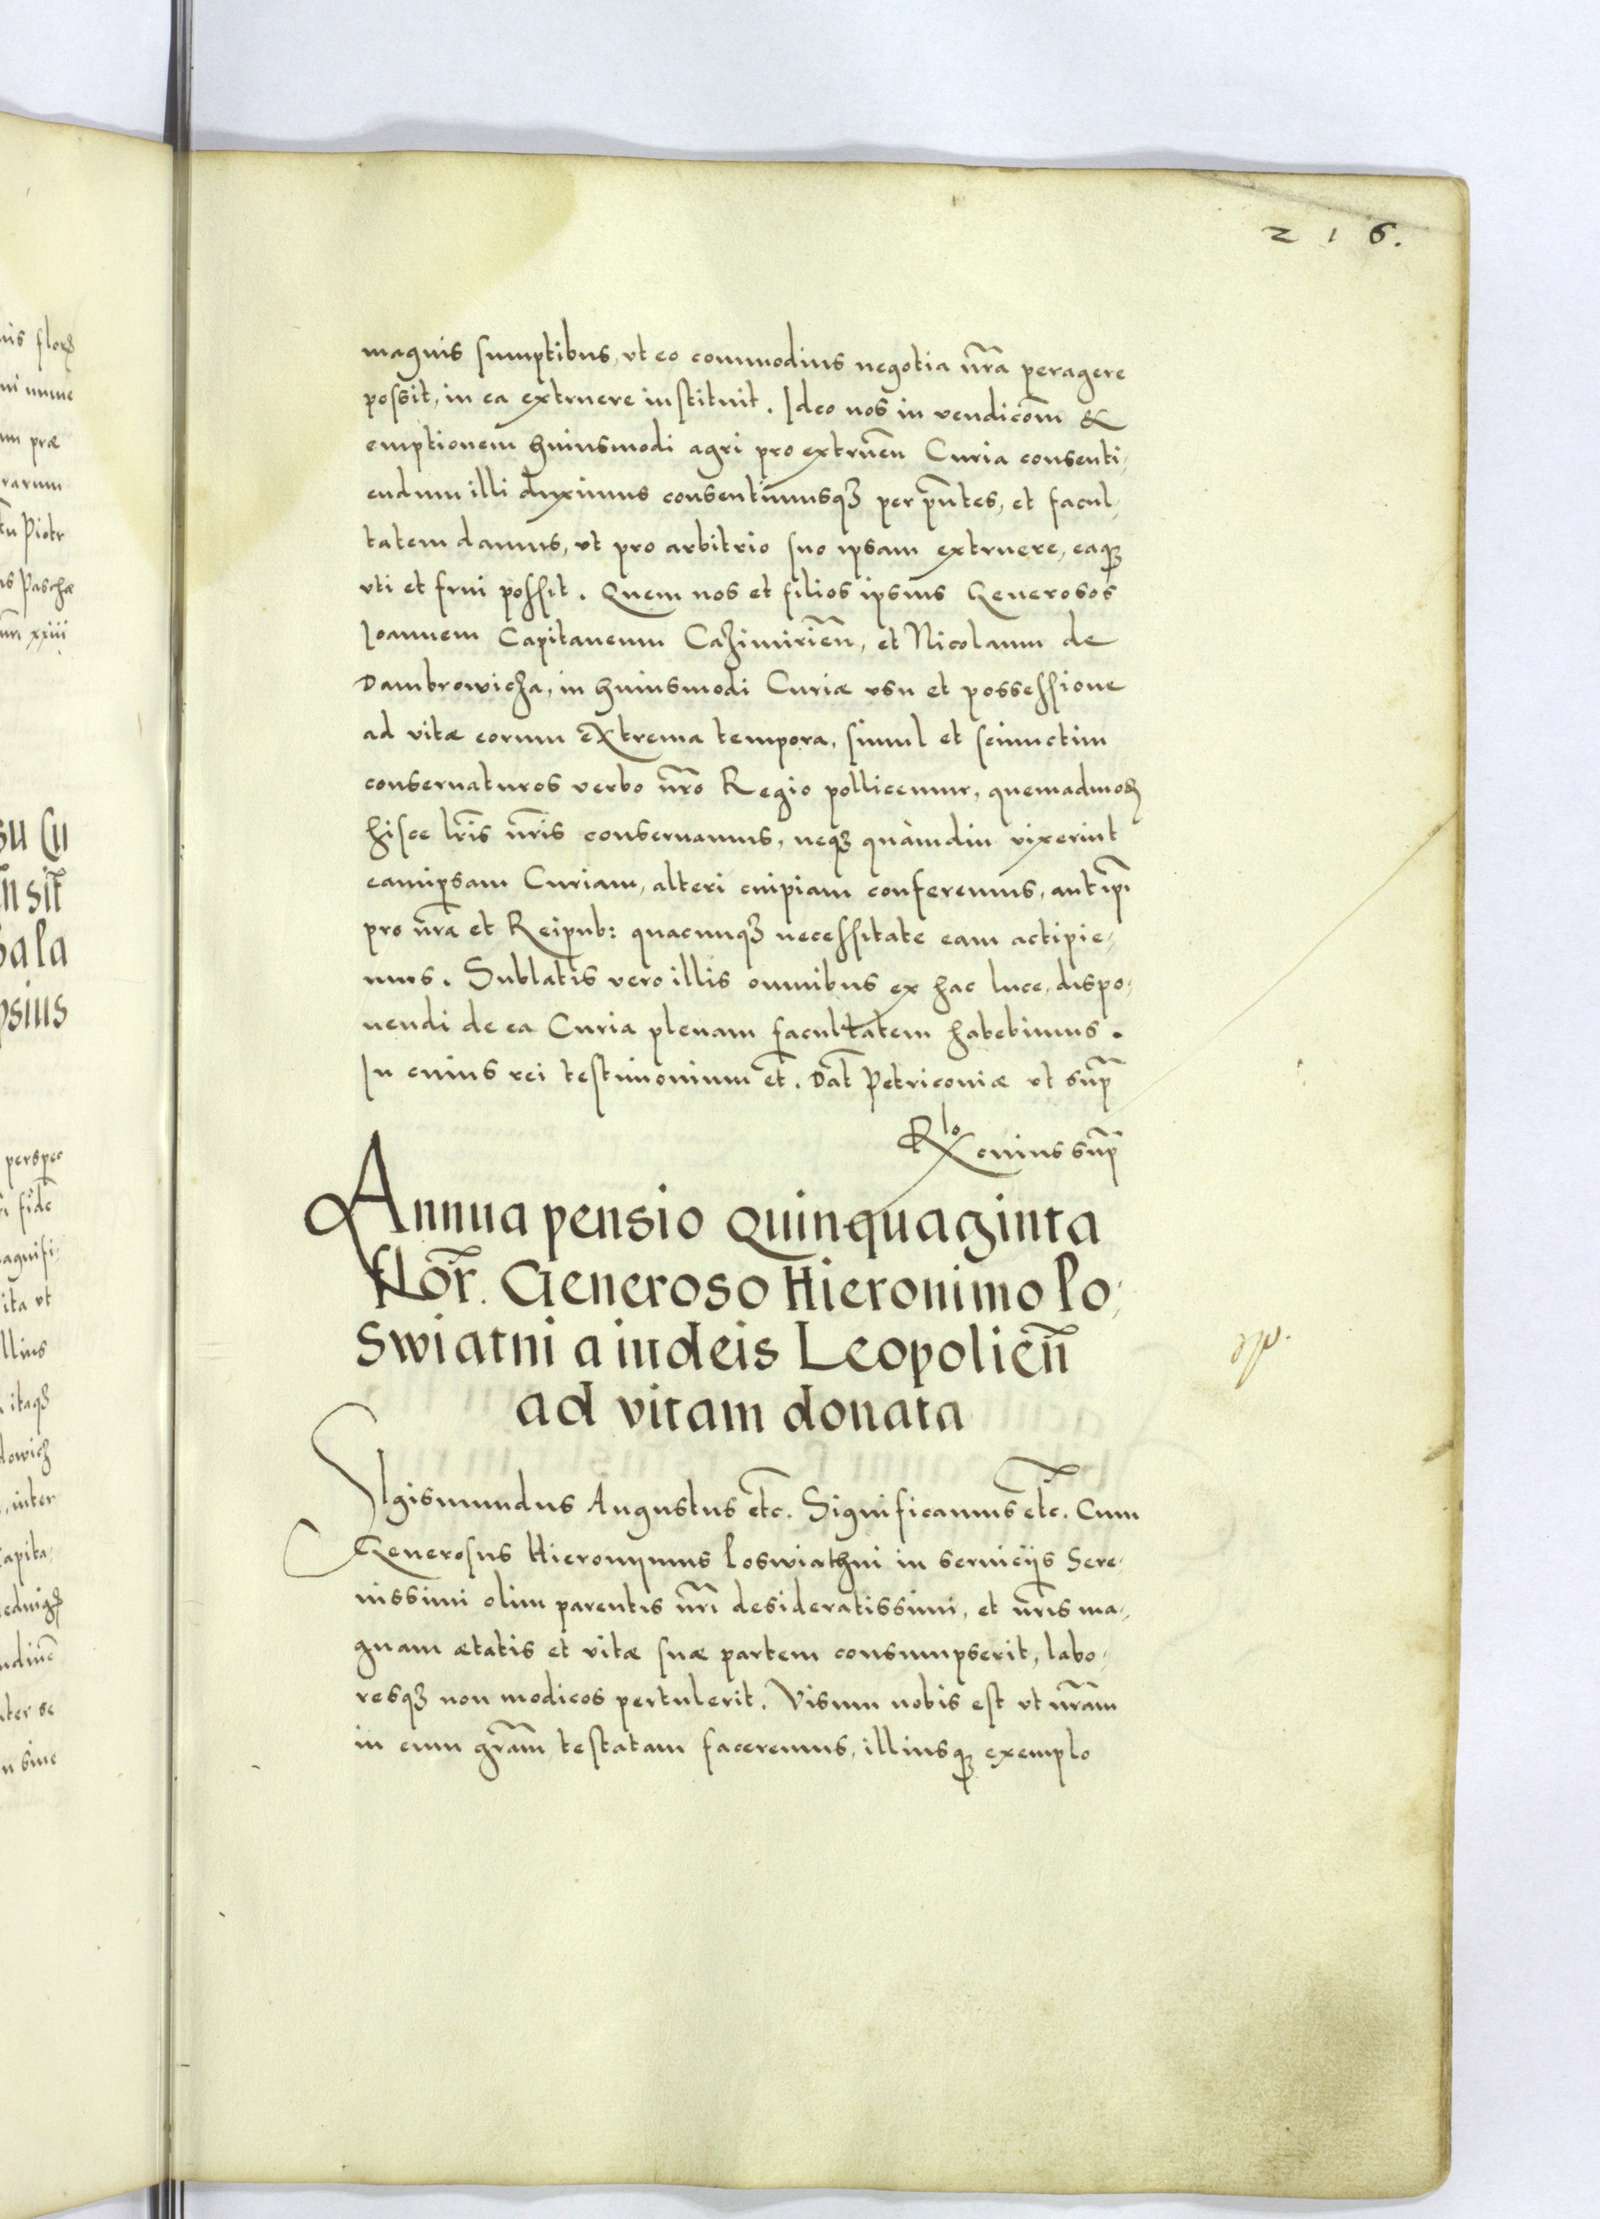 216.
magnis sumptibus, ut eo commodius negotia nr̃a peragere
possit, in ea extruere instituit. Ideo nos in vendicoẽm &
emptionem huiusmodi agri pro extruen̄ Curia consenti,
endum illi duximus consentimusqꝫ per pñtes, et facul,
tatem damus, ut pro arbitrio suo ipsam extruere, eaqꝫ
uti et frui possit. Quem nos et filios ipsius Generosos
Joannem Capitaneum Cazimirien̄, et Nicolaum de
Dambrowicza, in huiusmodi Curiæ usu et possessione
ad vitæ eorum extrema tempora, simul et seiunctim
conservaturos verbo nr̃o Regio pollicemur, quemadmodꝫ
hisce lr̃is nr̃is conservamus, neqꝫ quàmdiu vixerint
eamipsam Curiam, alteri cuipiam conferemus, aut ip̃i
pro nr̃a et Reipub: quacunqꝫ necessitate eam accipie,
mus. Sublatis vero illis omnibus ex hac luce, dispo,
nendi de ea Curia plenam facultatem habebimus.
In cuius rei testimonium et̃. Dat̃ Petricoviæ ut sup̃
Rlo cuius sup̃
Annua pensio Quinquaginta
flor̃. Generoso Hieronimo Lo,
swiatni a iudeis Leopolien̄
ad vitam donata
SIgismundus Augustus etc̃. Significamus etc̃. Cum
Generosus Hieronymus Loswiathni in serviciis Sere,
nissimi olim parentis nr̃i desideratissimi, et nr̃is ma,
gnam ætatis et vitæ suæ partem consumpserit, labo,
resqꝫ non modicos pertulerit. Visum nobis est ut nr̃am
in eum gr̃am testatam faceremus, illiusqꝫ exemplo